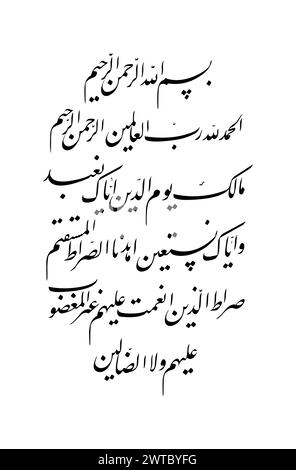 بسم الله الرحمن الرحیم
الحمدلله رب العالمین الرحمن الرحیم
مالک یوم الدین ایاک نعبد
وایاک نستعین اهدنا الصراط المستقیم
صراط الذین انعمت علیهم غیر المغضوب
علیهم ولا الضالین
alamy
Image ID: 2WTBYFG
www.alamy.com